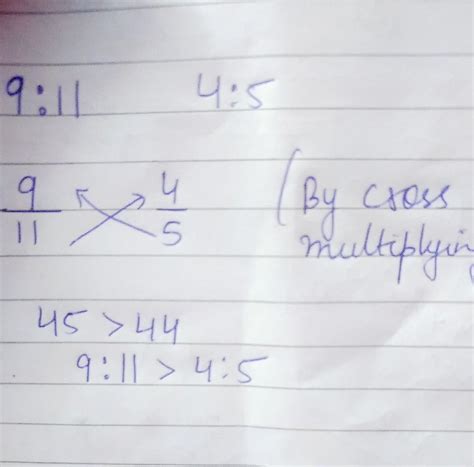 9:11 4:5
9/11 4/5 (By cross
multiplying
45 > 44
9:11 > 4:5